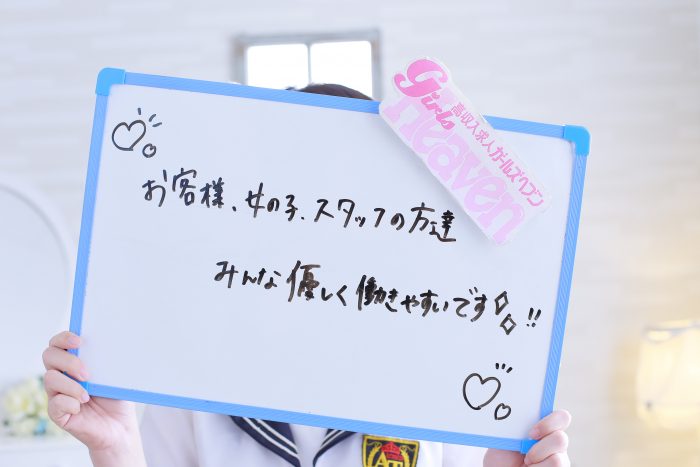 girls
Heaven
高収入求人ガールズヘブン
お客様、女の子、スタッフの方達
みんな優しく働きやすいです!!
AT